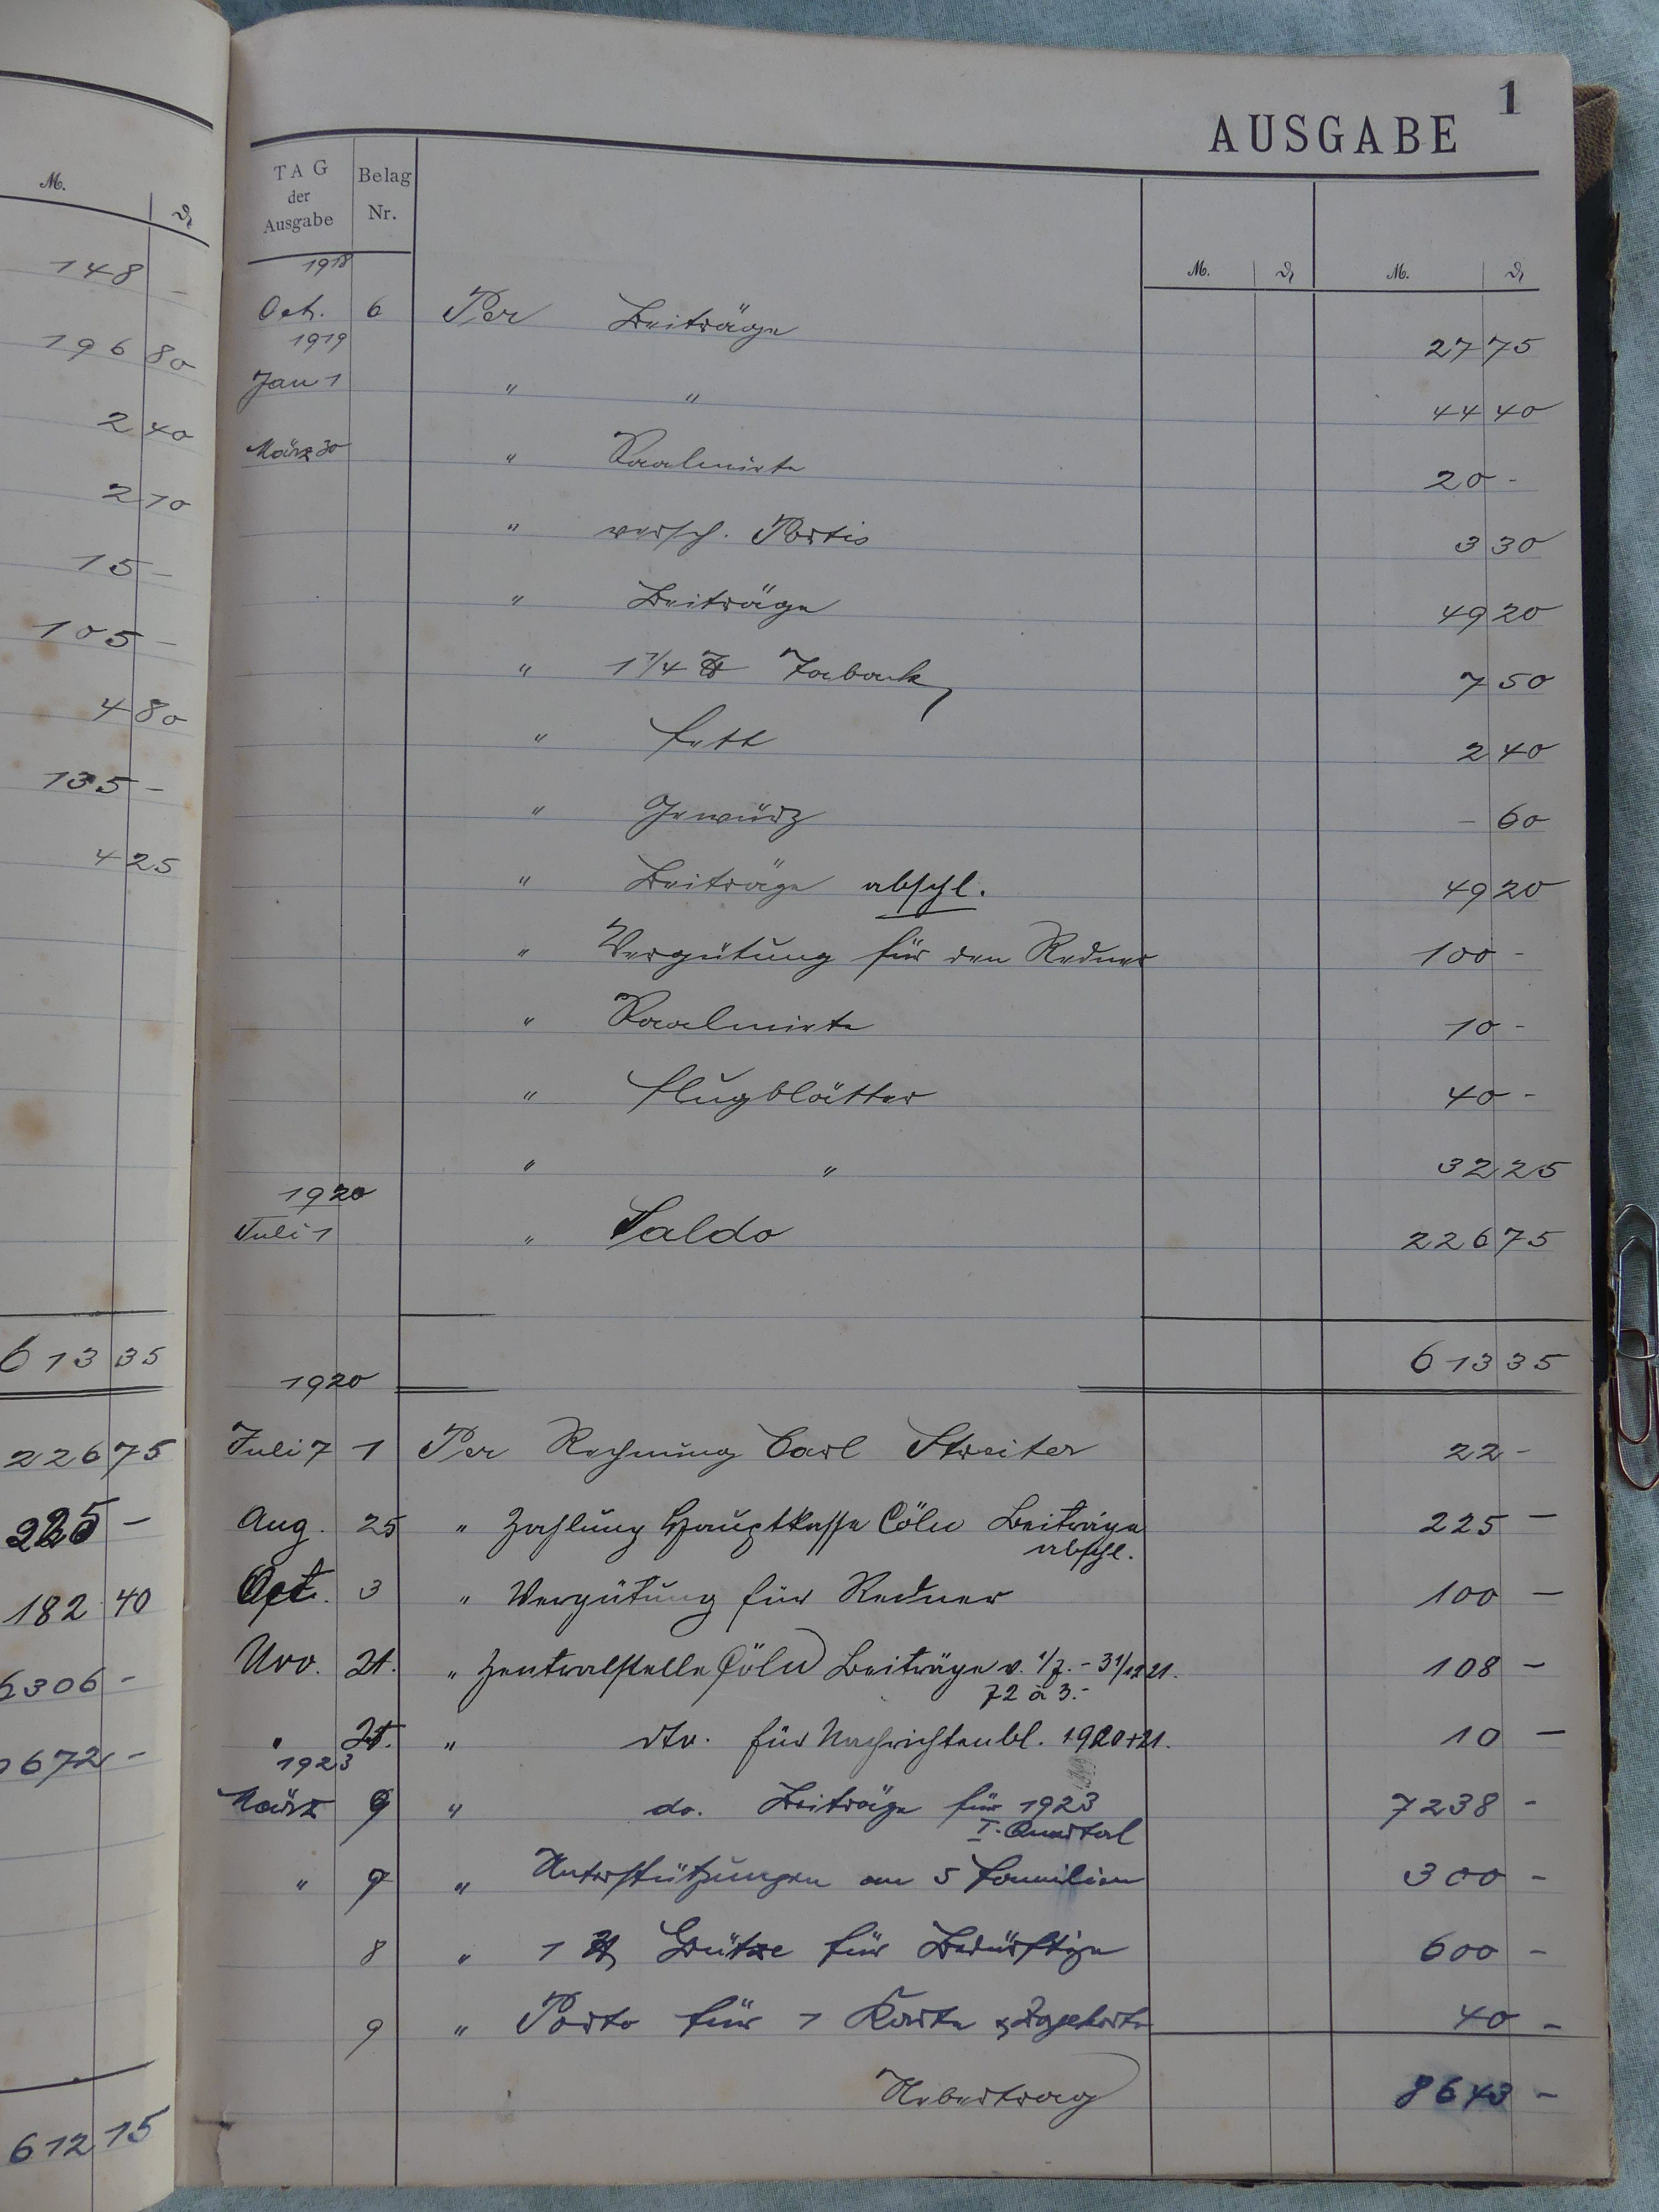 M. ₰
148 –
196 80
2 40
2 10
15 –
105 –
4 80
135 –
4 25
613 35
226 75
225 –
182 40
6306 –
672 –
612 15
1
AUSGABE
TAG der Ausgabe
Belag Nr.
M. ₰ M. ₰
1918
Oct. 6 Per Beiträge 27 75
1919
Jan 1 " " 44 40
März 30 " Saalmiete 20 -
" versch. Portis 3 30
" Beiträge 49 20
" 1 1/4 ℔ Taback, 7 50
" Fett 2 40
" Gewürz – 60
" Beiträge abschl. 49 20
" Vergütung für den Redner 100 -
" Saalmiete 10 -
" Flugblätter 40 -
" " 32 25
1920
Juli 1 " Saldo 226 75
613 35
1920
Juli 7 1 Per Rechnung Carl Streiter 22 -
Aug. 25 " Zahlung Hauptkasse Cöln Beiträge 225 –
abschl.
Oct. 3 " Vergütung für Redner 100 –
Nov. 21. " Zentralstelle Cöln Beiträge v. 1/7. - 31/12 21. 108 –
72 à 3.-
" " dto. für Nachrichtenbl. 1920+21. 10 –
1923
März 9 " do. Beiträge für 1923 7238 -
I. Quartal
" 9 " Unterstützungen an 5 Familien 300 -
8 " 1 ℔ Grütze für Bedürftige 600 -
9 " Porto für 1 Karte 40 -
Uebertrag 8643 –